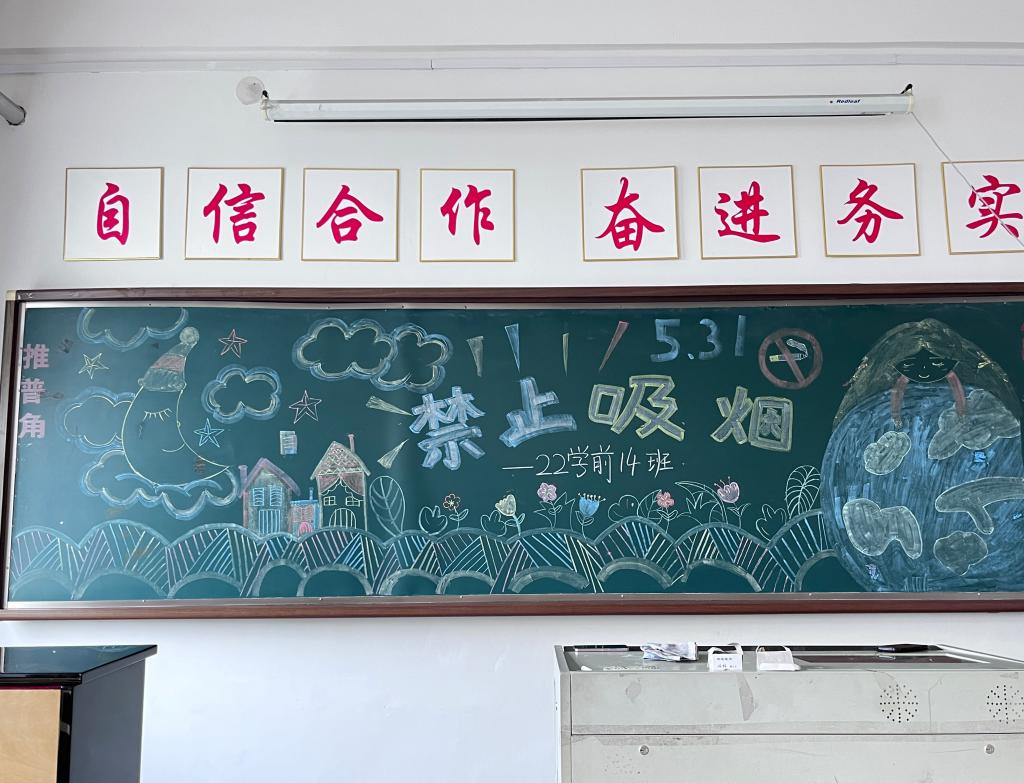 Redleaf
自信合作 奋进务实
推普角
5.31
禁止吸烟
—22学前14班